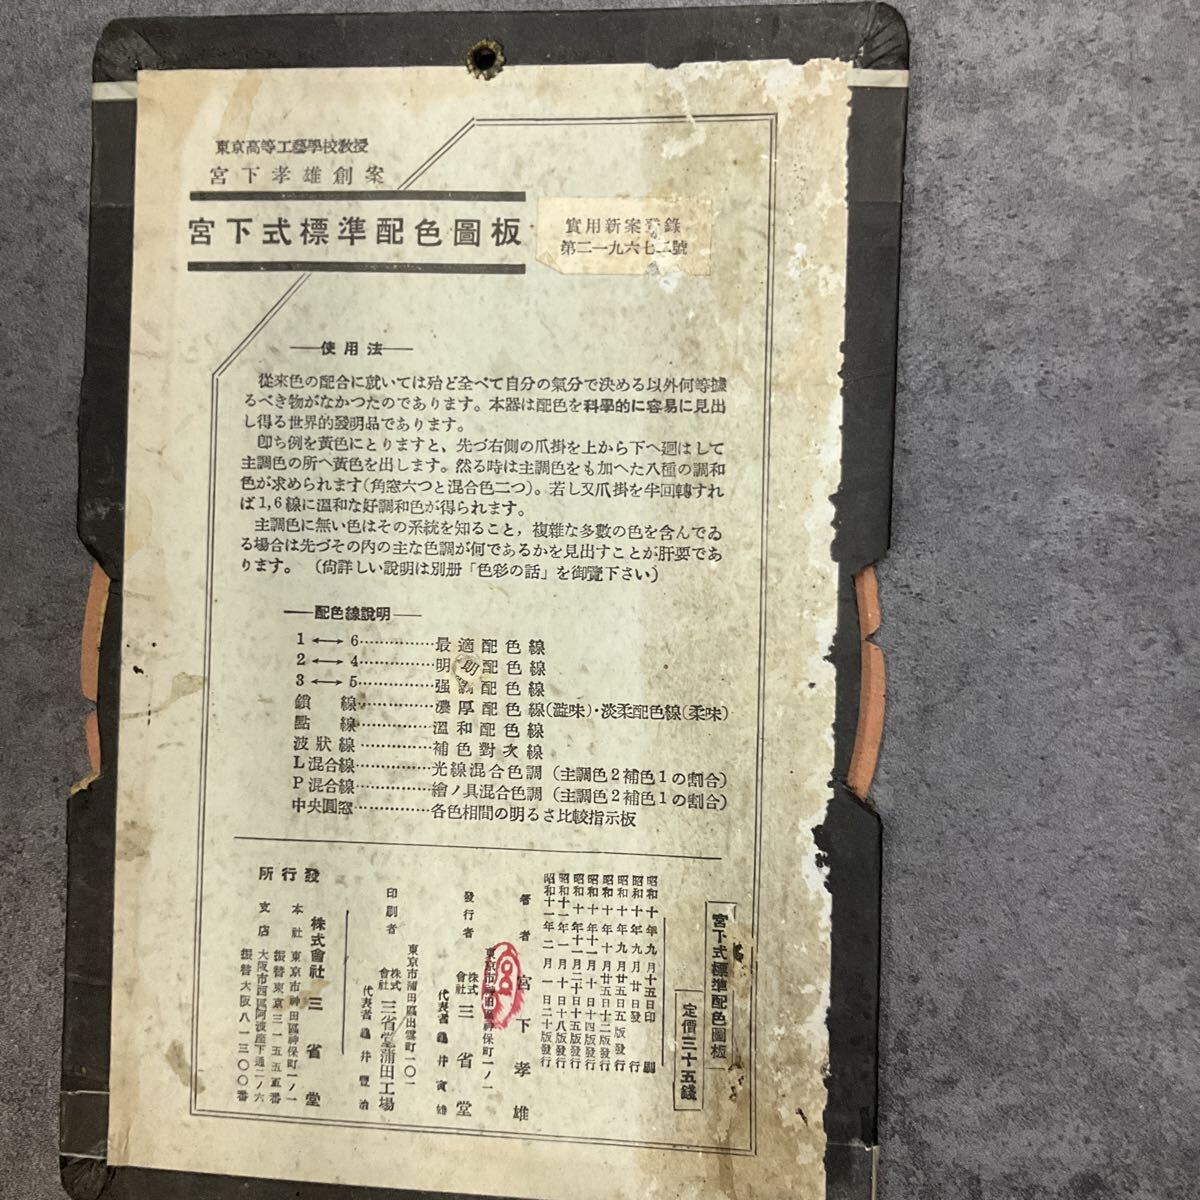 東京高等工藝學校教授
宮下孝雄創案
宮下式標準配色圖板
實用新案登錄
第二一九六七二號
使用法
從來色の配合に就いては殆ど全べて自分の氣分で決める以外何等據
るべき物がなかつたのであります。本器は配色を科學的に容易に見出
し得る世界的發明品であります。
卽ち例を黃色にとりますと、先づ右側の爪掛を上から下へ廻はして
主調色の所へ黃色を出します。然る時は主調色をも加へた八種の調和
色が求められます(角窓六つと混合色二つ)。若し又爪掛を半回轉すれ
ば1,6線に溫和な好調和色が得られます。
主調色に無い色はその系統を知ること，複雜な多數の色を含んでゐ
る場合は先づその內の主な色調が何であるかを見出すことが肝要であ
ります。 (尙詳しい說明は別册「色彩の話」を御覽下さい)
配色線說明
1 ←→ 6……………最適配色線
2 ←→ 4……………明 配色線
3 ←→ 5……………强 配色線
鎖線……………濃厚配色線(澁味)・淡柔配色線(柔味)
點線……………溫和配色線
波狀線……………補色對次線
L混合線……………光線混合色調 (主調色2補色1の割合)
P混合線……………繪ノ具混合色調 (主調色2補色1の割合)
中央圓窓……………各色相間の明るさ比較指示板
宮下式標準配色圖板
定價三十五錢
昭和十年九月十五日印刷
昭和十年九月廿日發行
昭和十年九月廿五日五版發行
昭和十年十月廿五日十二版發行
昭和十年十一月十日十四版發行
昭和十年十一月二十日十五版發行
昭和十一年一月十日十八版發行
昭和十一年二月一日二十版發行
著者 宮下孝雄
東京市神田區神保町一ノ一
發行者 株式會社 三省堂
代表者 龜井寅雄
東京市蒲田區出雲町一〇一
印刷者 株式會社 三省堂蒲田工場
代表者 龜井豐治
發行所
株式會社 三省堂
本社 東京市神田區神保町一ノ一
振替東京三一五五五番
支店 大阪市西區阿波座下通二ノ六
振替大阪八一三〇〇番